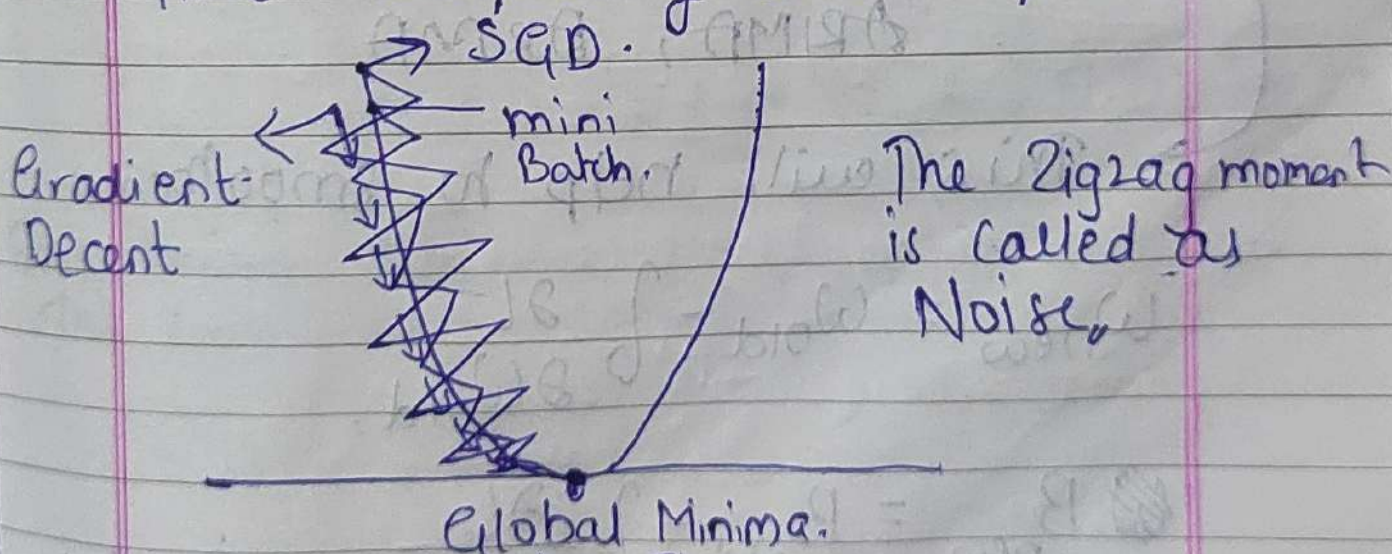 SGD.
mini
Batch.
Gradient
Decent
The Zigzag moment
is called as
Noise.
Global Minima.